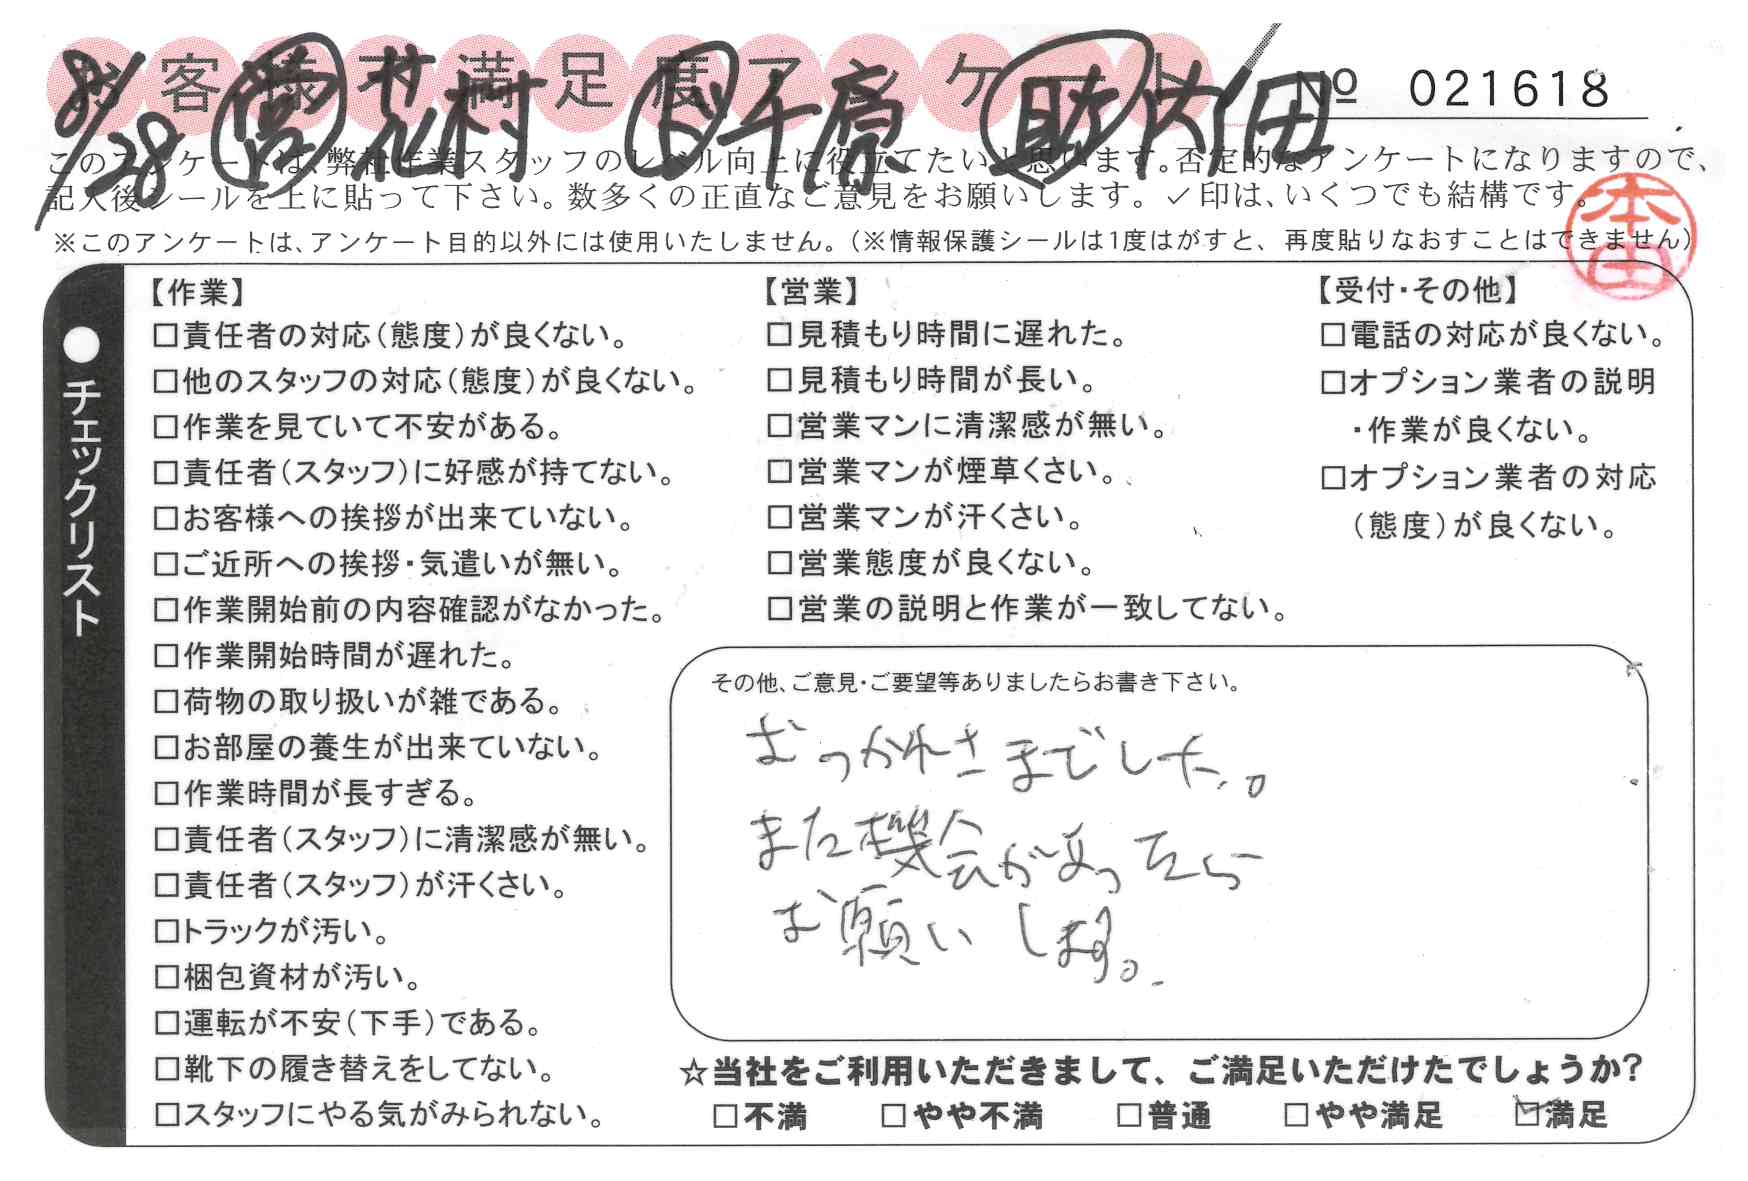 お客様の満足度アンケート
№ 021618
8/28 営 花村 ド 千原 助 内田
このアンケートは、弊社作業スタッフのレベル向上に役立てたいと思います。否定的なアンケートになりますので、
記入後シールを上に貼って下さい。数多くの正直なご意見をお願いします。✓印は、いくつでも結構です。
※このアンケートは、アンケート目的以外には使用いたしません。（※情報保護シールは1度はがすと、再度貼りなおすことはできません）
本田
●チェックリスト
【作業】
□責任者の対応（態度）が良くない。
□他のスタッフの対応（態度）が良くない。
□作業を見ていて不安がある。
□責任者（スタッフ）に好感が持てない。
□お客様への挨拶が出来ていない。
□ご近所への挨拶・気遣いが無い。
□作業開始前の内容確認がなかった。
□作業開始時間が遅れた。
□荷物の取り扱いが雑である。
□お部屋の養生が出来ていない。
□作業時間が長すぎる。
□責任者（スタッフ）に清潔感が無い。
□責任者（スタッフ）が汗くさい。
□トラックが汚い。
□梱包資材が汚い。
□運転が不安（下手）である。
□靴下の履き替えをしてない。
□スタッフにやる気がみられない。
【営業】
□見積もり時間に遅れた。
□見積もり時間が長い。
□営業マンに清潔感が無い。
□営業マンが煙草くさい。
□営業マンが汗くさい。
□営業態度が良くない。
□営業の説明と作業が一致してない。
【受付・その他】
□電話の対応が良くない。
□オプション業者の説明
・作業が良くない。
□オプション業者の対応
（態度）が良くない。
その他、ご意見・ご要望等ありましたらお書き下さい。
おつかれさまでした。
また機会があったら
お願いします。
☆当社をご利用いただきまして、ご満足いただけたでしょうか？
□不満 □やや不満 □普通 □やや満足 ☑満足